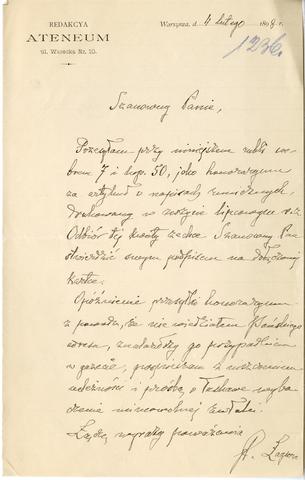 REDAKCYA
ATENEUM
ul. Warecka Nr. 10.
Warszawa, d. 4 lutego 1898 r.
1236.
Szanowny Panie,
Posyłam przy niniejszem rubli sre-
brem 7 i kop. 50, jako honoraryum
za artykuł o napisach runicznych
drukowany w zeszycie lipcowym r.z.
Odbiór tej kwoty zechce Szanowny Pan
stwierdzić swym podpisem na dołączonej
kartce.
Opóźnienie przesyłki honoraryum
z powodu, że nie wiedziałem Pańskiego
adresu, znalazłszy go przypadkiem
w gazecie, pospieszam z uiszczeniem
należności i proszę o łaskawe wyba-
czenie mimowolnej zwłoki.
Łączę wyrazy poważania